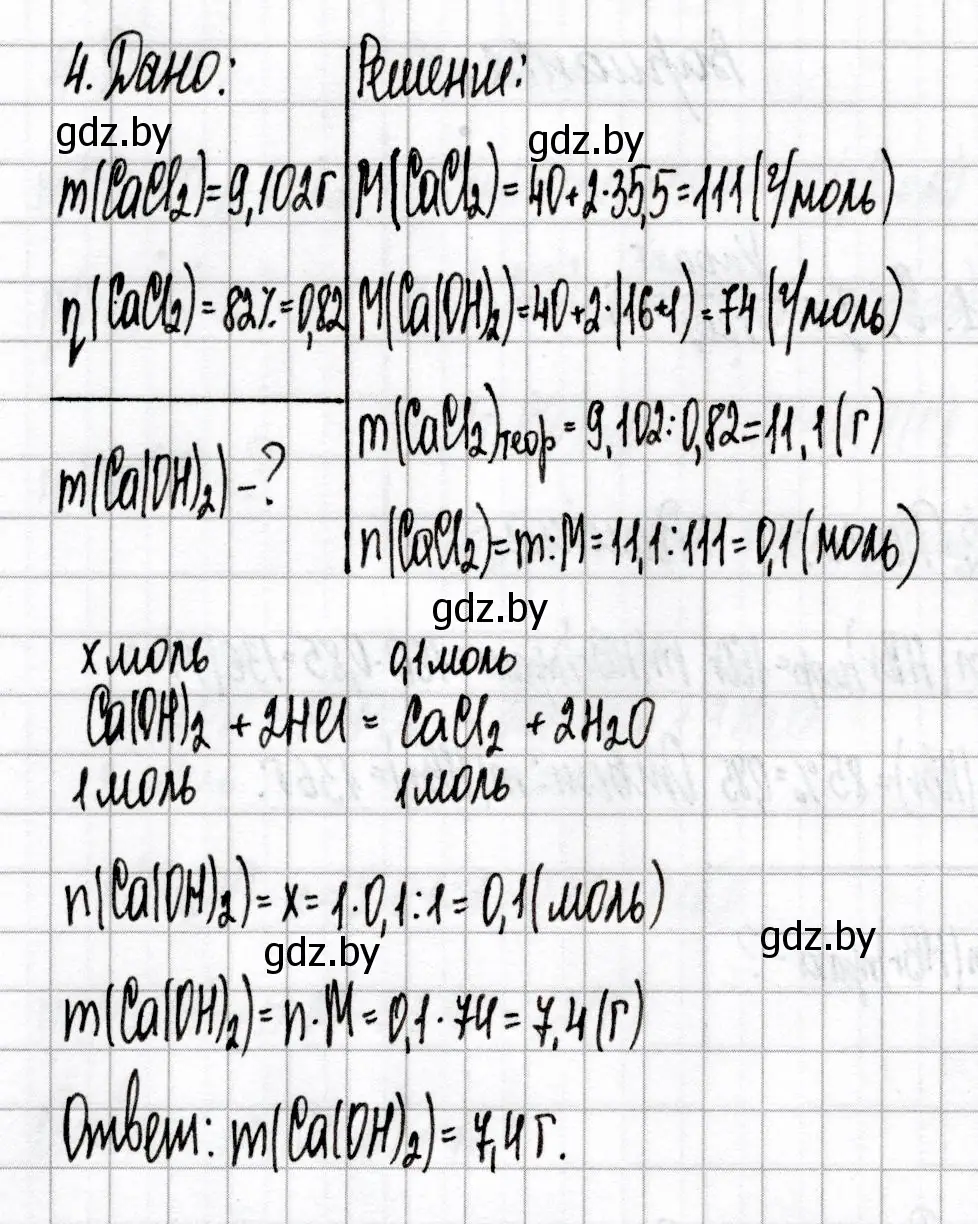 4. Дано:
gdz.by
m(CaCl₂)=9,102г
η(CaCl₂)=82%=0,82
m(Ca(OH)₂)-?
Решение:
gdz.by
M(CaCl₂)=40+2·35,5=111(г/моль)
M(Ca(OH)₂)=40+2·(16+1)=74(г/моль)
m(CaCl₂)теор=9,102:0,82=11,1(г)
n(CaCl₂)=m:M=11,1:111=0,1(моль)
gdz.by
x моль 0,1 моль
Ca(OH)₂ + 2HCl = CaCl₂ + 2H₂O
1 моль 1 моль
n(Ca(OH)₂)=x=1·0,1:1=0,1(моль)
gdz.by
gdz.by
m(Ca(OH)₂)=n·M=0,1·74=7,4(г)
Ответ: m(Ca(OH)₂)=7,4г.